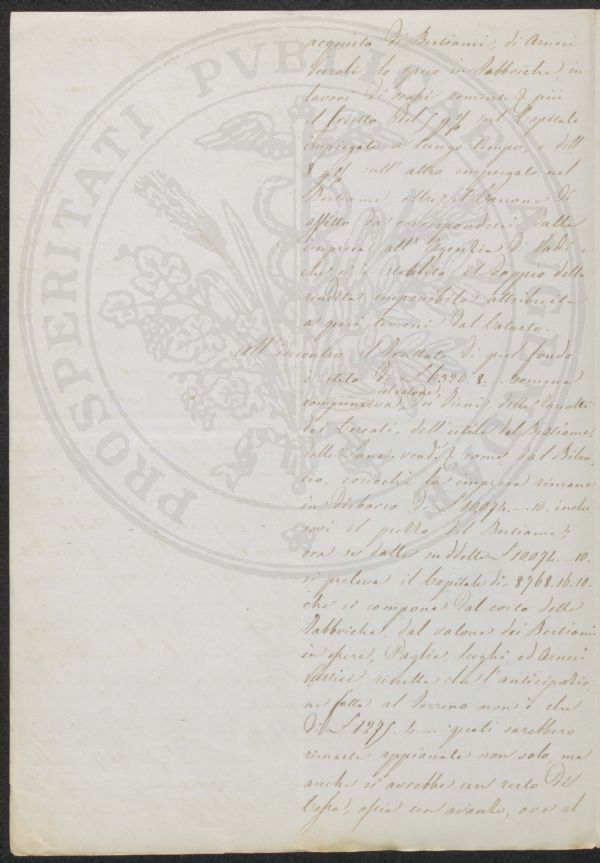 PROSPERITATI PUBLICAE AUGENDAE
acquisto di Bestiami, di Arnesi
Rurali, lo speso in Fabbriche, in
lavori di scassi sementi, & più
il frutto del 5 p% sul Capitale
impiegato a lungo tempo, e dell'
8 p% sull'altro impiegato nel
Bestiame, oltre il Canone di
affitto da corrispondersi dalla
impresa all'Agenzia di
che si è stabilito il doppio della
rendita imponibile attribuita
a quei terreni dal Catasto.
All'incontro il Fruttato di quel fondo
è stato di L 6390. 8. - .
compensativa, il valore dei Fieni, delle Raccolte
dei Cereali, dell'utile del Bestiame,
delle Lane vend. & come dal Bilan-
cio, cosicchè la impresa rimane
in disborso di L 10,074. - . 10. inclu-
sovi il prezzo del Bestiame;
ora se dalle suddette L 10,074. - . 10.
si preleva il Capitale di 8768. 16. 10.
che si compone dal costo delle
Fabbriche, dal valore dei Bestiami
in essere, Paglie, Sughi, ed Arnesi
rusticali risulta che l'anticipazio-
ne fatta al Terreno non è che
di L 1275. 4. - . quali sarebbero
rimaste appianate non solo, ma
anche si avrebbe un resto di
Cassa, ossia un avanzo, ove al